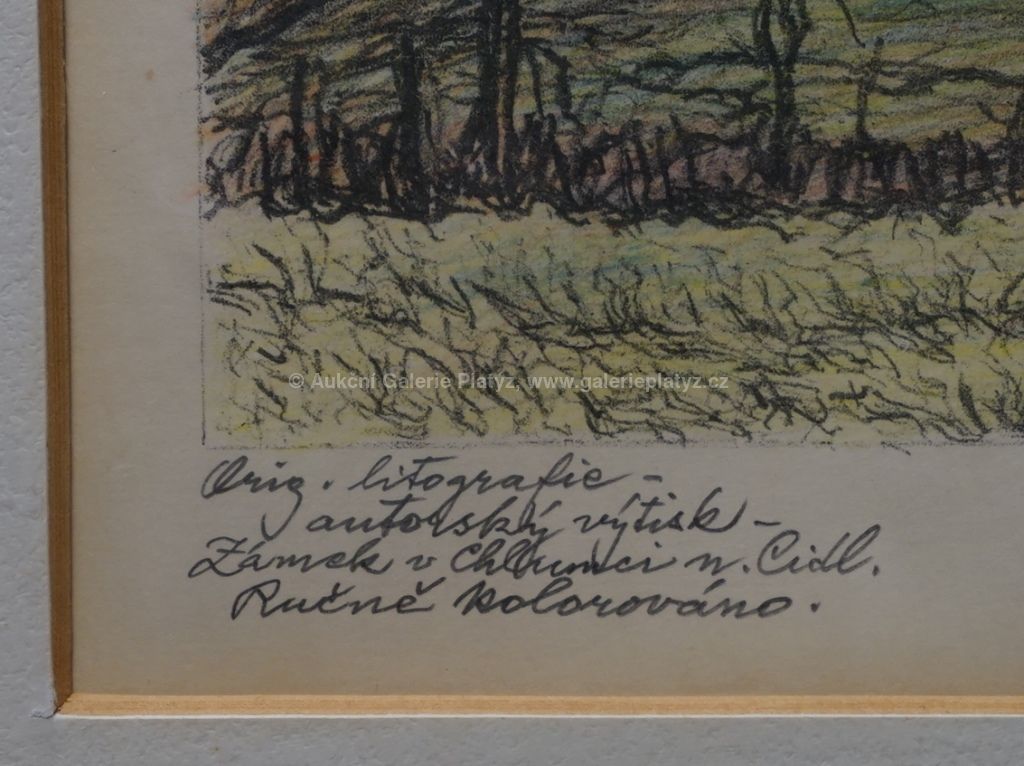 © Aukcní Galerie Platyz, www.galerieplatyz.cz
Orig. litografie -
autorský výtisk -
Zámek v Chlumci n. Cidl.
Ručně kolorováno.